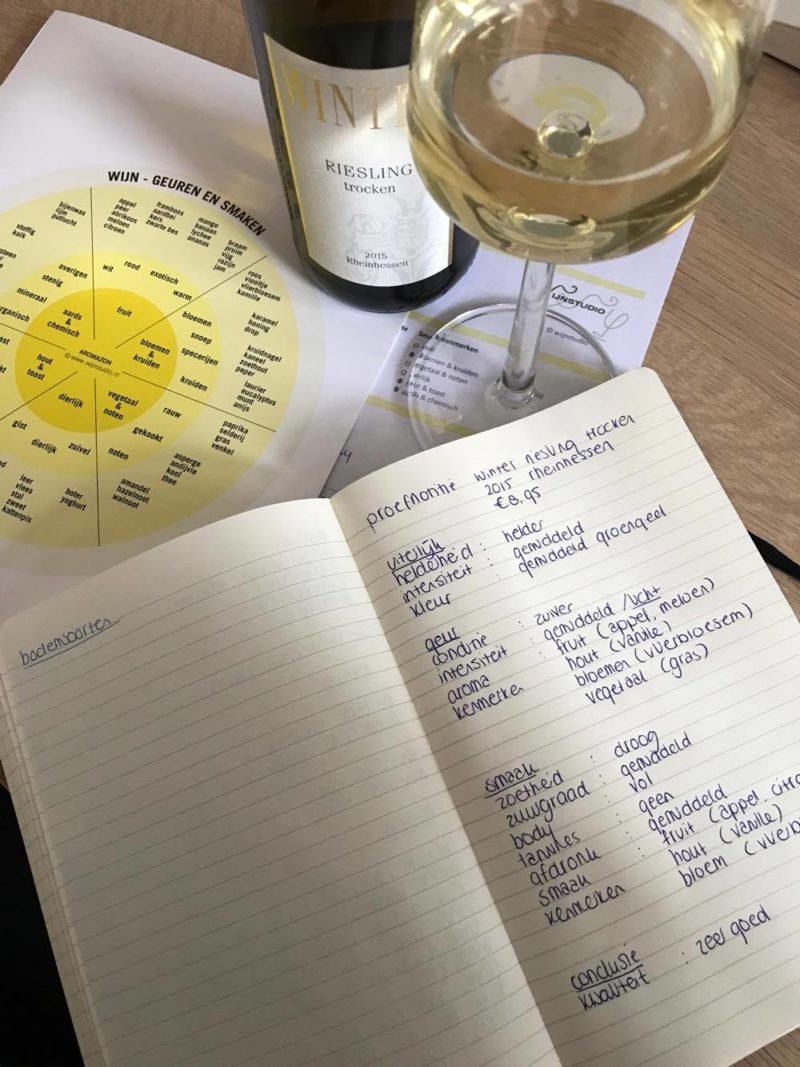 WIJN - GEUREN EN SMAKEN
bijenwas
lijm
putlucht
stoffig
kalk
appel
peer
abrikoos
meloen
citroen
framboos
aardbei
kers
zwarte bes
mango
banaan
lychee
ananas
braam
pruim
vijg
rozijn
jam
roos
viooltje
vlierbloesem
kamille
karamel
honing
drop
kruidnagel
kaneel
zoethout
peper
laurier
eucalyptus
munt
anijs
paprika
selderij
gras
venkel
asperge
andijvie
kool
thee
amandel
hazelnoot
walnoot
boter
yoghurt
leer
vlees
stal
zweet
kattenpis
overigen
stenig
mineraal
wit
rood
exotisch
warm
bloemen
snoep
specerijen
kruiden
rauw
gekookt
noten
zuivel
dierlijk
gist
aards
&
chemisch
fruit
bloemen
&
kruiden
vegetaal
&
noten
dierlijk
hout
&
toast
AROMAZON
© www.wijnstudio.nl
WINT
RIESLING
trocken
2015
Rheinhessen
IJNSTUDIO
© wijnstudio
aards & chemisch
proefnotitie winter riesling trocken
2015 rheinhessen
€8,95
uiterlijk
helderheid : helder
intensiteit : gemiddeld
kleur gemiddeld groengeel
geur
conditie : zuiver
intensiteit : gemiddeld / licht
aroma : fruit (appel, meloen)
kenmerken hout (vanille)
bloemen (vlierbloesem)
vegetaal (gras)
smaak
zoetheid : droog
zuurgraad : gemiddeld
body : vol
tannines : geen
afdronk : gemiddeld
smaak : fruit (appel, citro
kenmerken hout (vanille)
bloem (vlierb
conclusie
kwaliteit : zeer goed
bodemsoorten